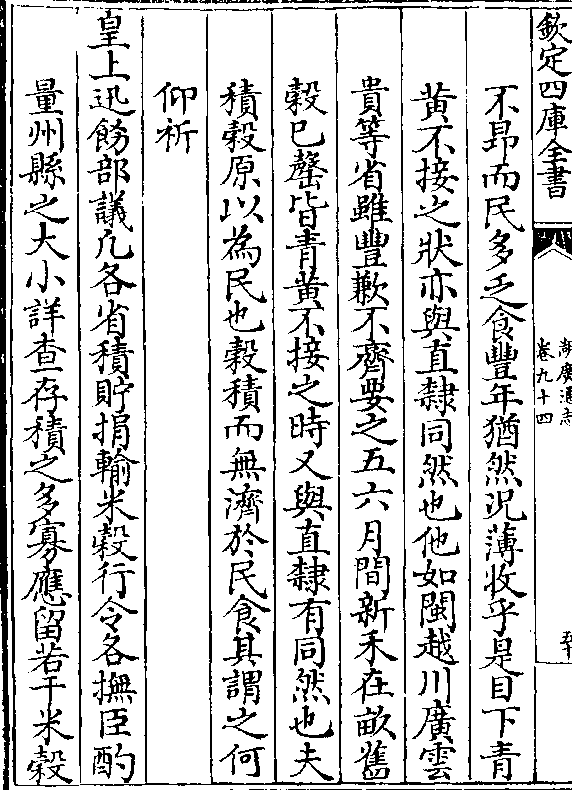 欽定四庫全書
湖廣通志
卷九十四
不昂而民多乏食豐年猶然況薄收乎是目下青
黄不接之狀亦與直隸同然也他如閩越川廣雲
貴等省雖豐歉不齊要之五六月間新禾在畝舊
榖已罄皆青黄不接之時又與直隸有同然也夫
積榖原以為民也榖積而無濟於民食其謂之何
仰祈
皇上迅飭部議凡各省積貯捐輸米榖行令各撫臣酌
量州縣之大小詳查存積之多寡應留若干米榖